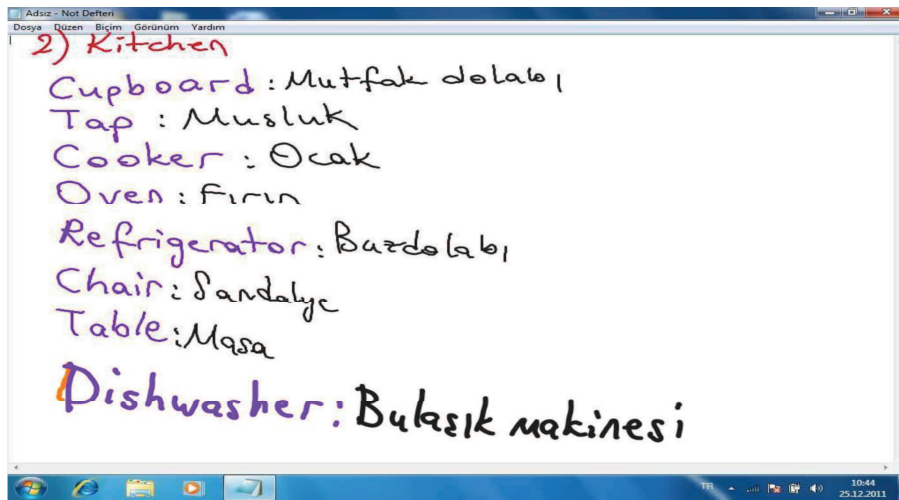 Adsız - Not Defteri
Dosya Düzen Biçim Görünüm Yardım
2) Kitchen
Cupboard: Mutfak dolabı
Tap: Musluk
Cooker: Ocak
Oven: Fırın
Refrigerator: Buzdolabı
Chair: Sandalye
Table: Masa
Dishwasher: Bulaşık makinesi
TR
10:44
25.12.2011